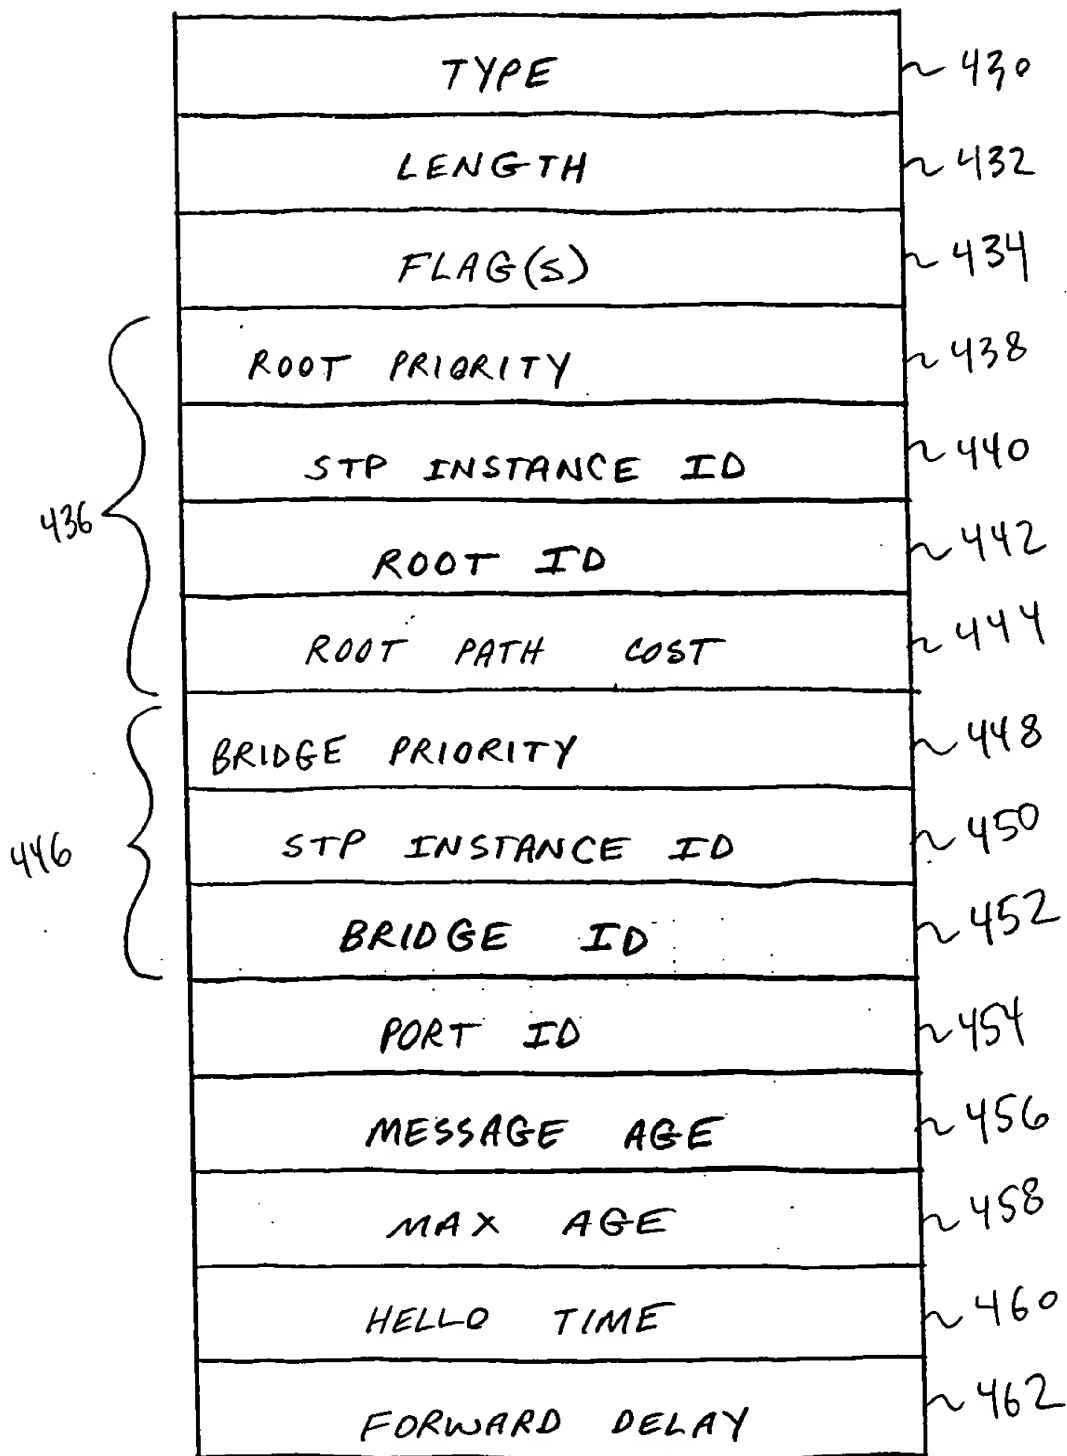 TYPE 430
LENGTH 432
FLAG(S) 434
ROOT PRIORITY 438
STP INSTANCE ID 440
436
ROOT ID 442
ROOT PATH COST 444
BRIDGE PRIORITY 448
446
STP INSTANCE ID 450
BRIDGE ID 452
PORT ID 454
MESSAGE AGE 456
MAX AGE 458
HELLO TIME 460
FORWARD DELAY 462